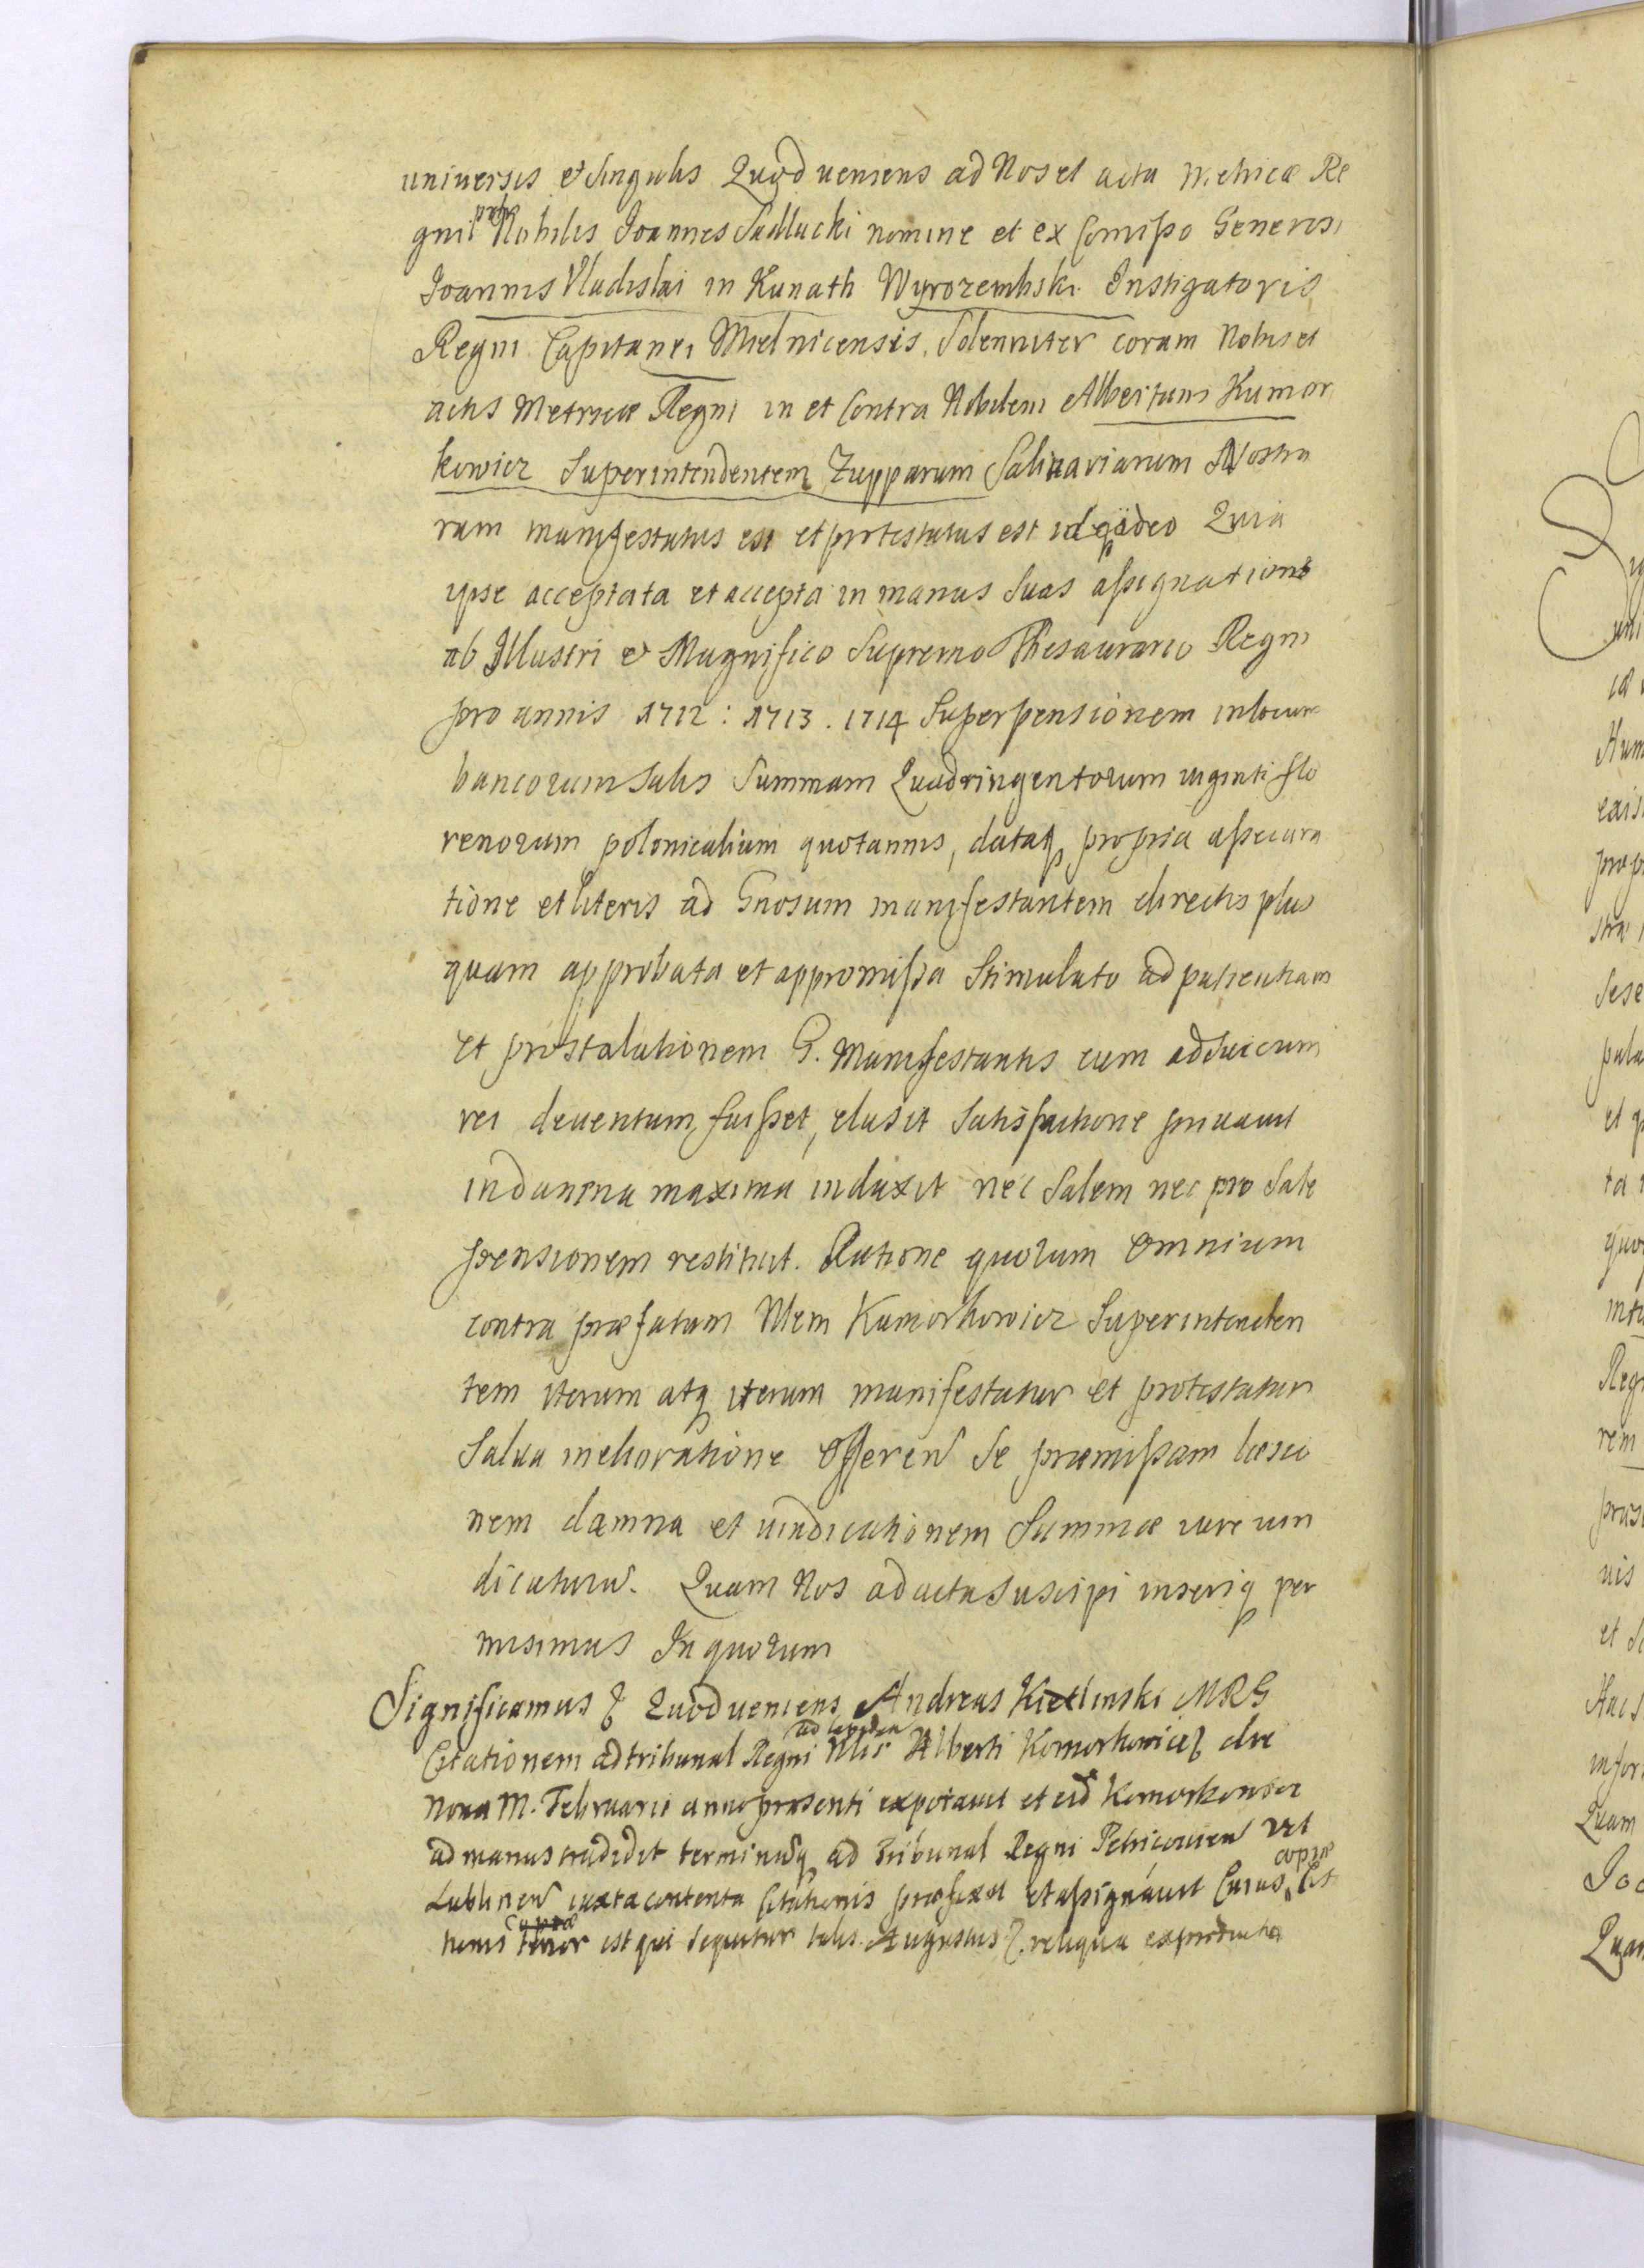 universis et singulis Quod veniens ad Nos et acta Metricæ Re
gni Nobilis Joannes Sadlucki nomine et ex Comisso Generosi
Joannis Vladislai in Kunath Wyrozembski Instigatoris
Regni Capitanei Mielnicensis. Solenniter coram Nobis et
actis Metricæ Regni in et contra Nobilem Albertum Kumor
kowicz Superintendentem Zupparum Salinariarum Nostra
rum manifestatus est et protestatus est ideo Quia
ipse acceptata et accepta in manus suas assignatione
ab Illustri et Magnifico Supremo Thesaurario Regni
pro annis 1712: 1713. 1714 Superpensionem in locum
bancorum salis Summam Quadringentorum viginti flo
renorum polonicalium quotannis, dataq propria assecura
tione et literis ad Gnosum manifestantem directis plus
quam approbata et appromissa Stimulato ad patientiam
et G. Manifestantis cum ad
rei deventum fuisset, elusit satisfactione privavit
in damna maxima induxit nec Salem nec pro Sale
pensionem restituit. Ratione quorum omnium
contra præfatum Nlem Kumorkowicz Superintenden
tem iterum atq iterum manifestatur et protestatur
Salva melioratione offeren se præmissam læsio
nem damna et vindicationem Summæ iure vin
dicaturu. Quam Nos ad acta suscipi inseriq per
misimus In quorum
Significamus Quod veniens Andreas Kietlinski MRG
Citationem ad tribunal Regni Nlis Alberti Komorkowicz die
Nona M. Februarii anno præsenti exportavit et eid Komorkowicz
ad manus tradidit terminuq ad Tribunal Regni Petricovien vel
Lublinen iuxta contenta Citationis præfixit et assignavit Cuius copiæ Cit
tionis tenor est qui sequitur talis. Augustus reliqua